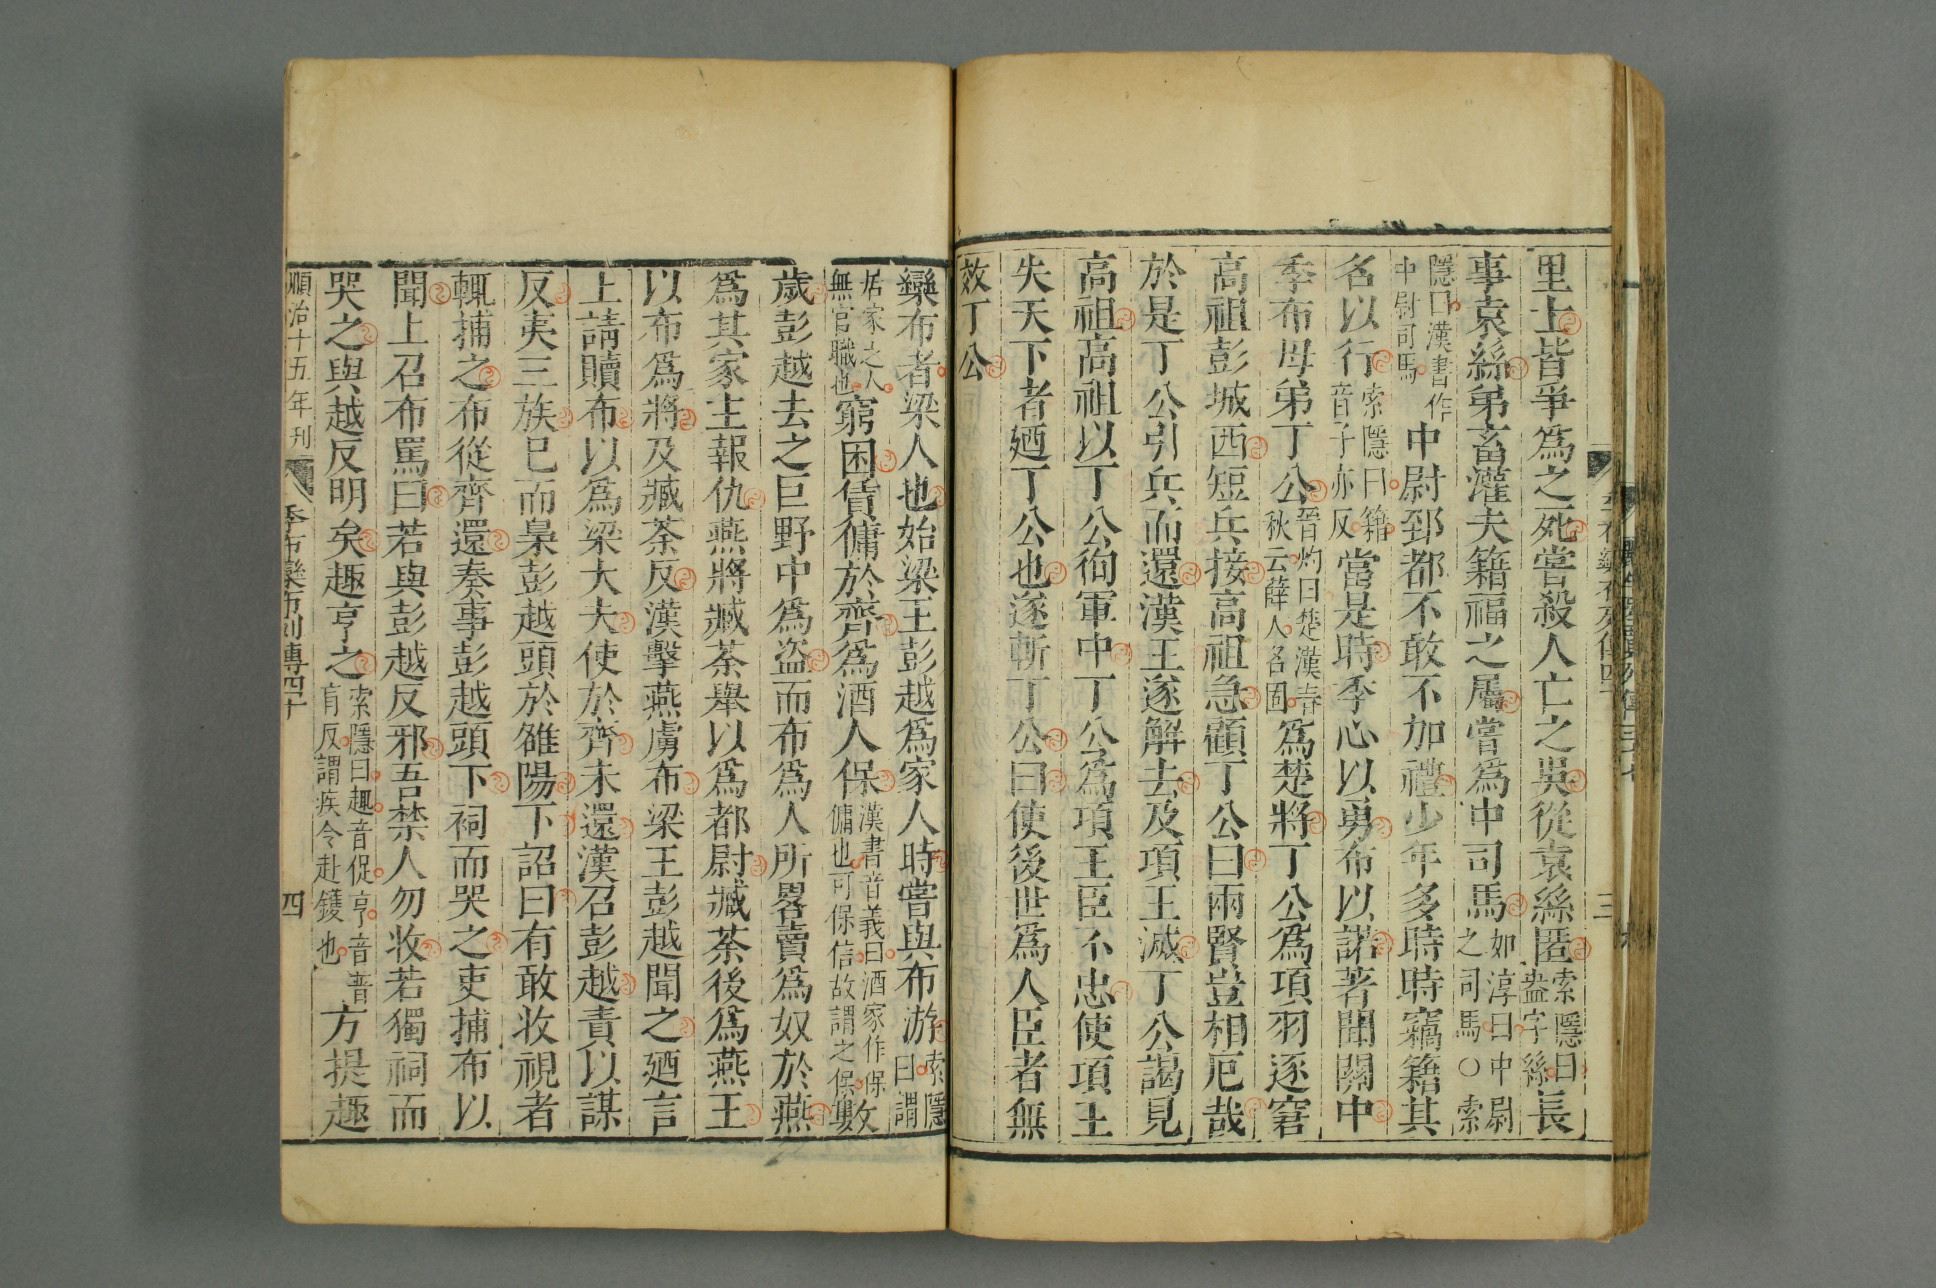 里士皆爭爲之死嘗殺人亡之吳從袁絲匿索隱曰盎字絲長
事袁絲弟畜灌夫籍福之屬嘗爲中司馬如淳曰中尉之司馬○索
隱曰漢書作中尉司馬中尉郅都不敢不加禮少年多時時竊籍其
名以行索隱曰籍音子亦反當是時季心以勇布以諾著聞關中
季布母弟丁公晉灼曰楚漢春秋云薛人名固爲楚將丁公爲項羽逐窘
高祖彭城西短兵接高祖急顧丁公曰兩賢豈相厄哉
於是丁公引兵而還漢王遂解去及項王滅丁公謁見
高祖高祖以丁公徇軍中丁公爲項王臣不忠使項王
失天下者廼丁公也遂斬丁公曰使後世爲人臣者無
效丁公
欒布者梁人也始梁王彭越爲家人時嘗與布游索隱曰謂
居家之人無官職也窮困賃傭於齊爲酒人保漢書音義曰酒家作保傭也可保信故謂之保數
歲彭越去之巨野中爲盜而布爲人所畧賣爲奴於燕
爲其家主報仇燕將臧荼舉以爲都尉臧荼後爲燕王
以布爲將及臧荼反漢擊燕虜布梁王彭越聞之廼言
上請贖布以爲梁大夫使於齊未還漢召彭越責以謀
反夷三族已而梟彭越頭於雒陽下詔曰有敢收視者
輒捕之布從齊還奏事彭越頭下祠而哭之吏捕布以
聞上召布罵曰若與彭越反邪吾禁人勿收若獨祠而
哭之與越反明矣趣亨之索隱曰趣音促亨音普肓反謂疾令赴鑊也方提趣
順治十五年刊 季布欒布列傳四十 四